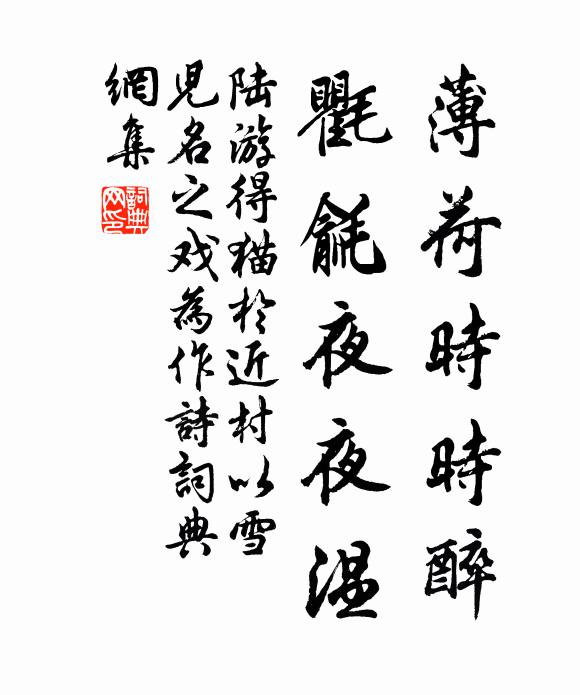 薄荷時時醉
氍毹夜夜温
陆游得猫於近村以雪
児名之戏為作詩詞典
網集
詞典
网印